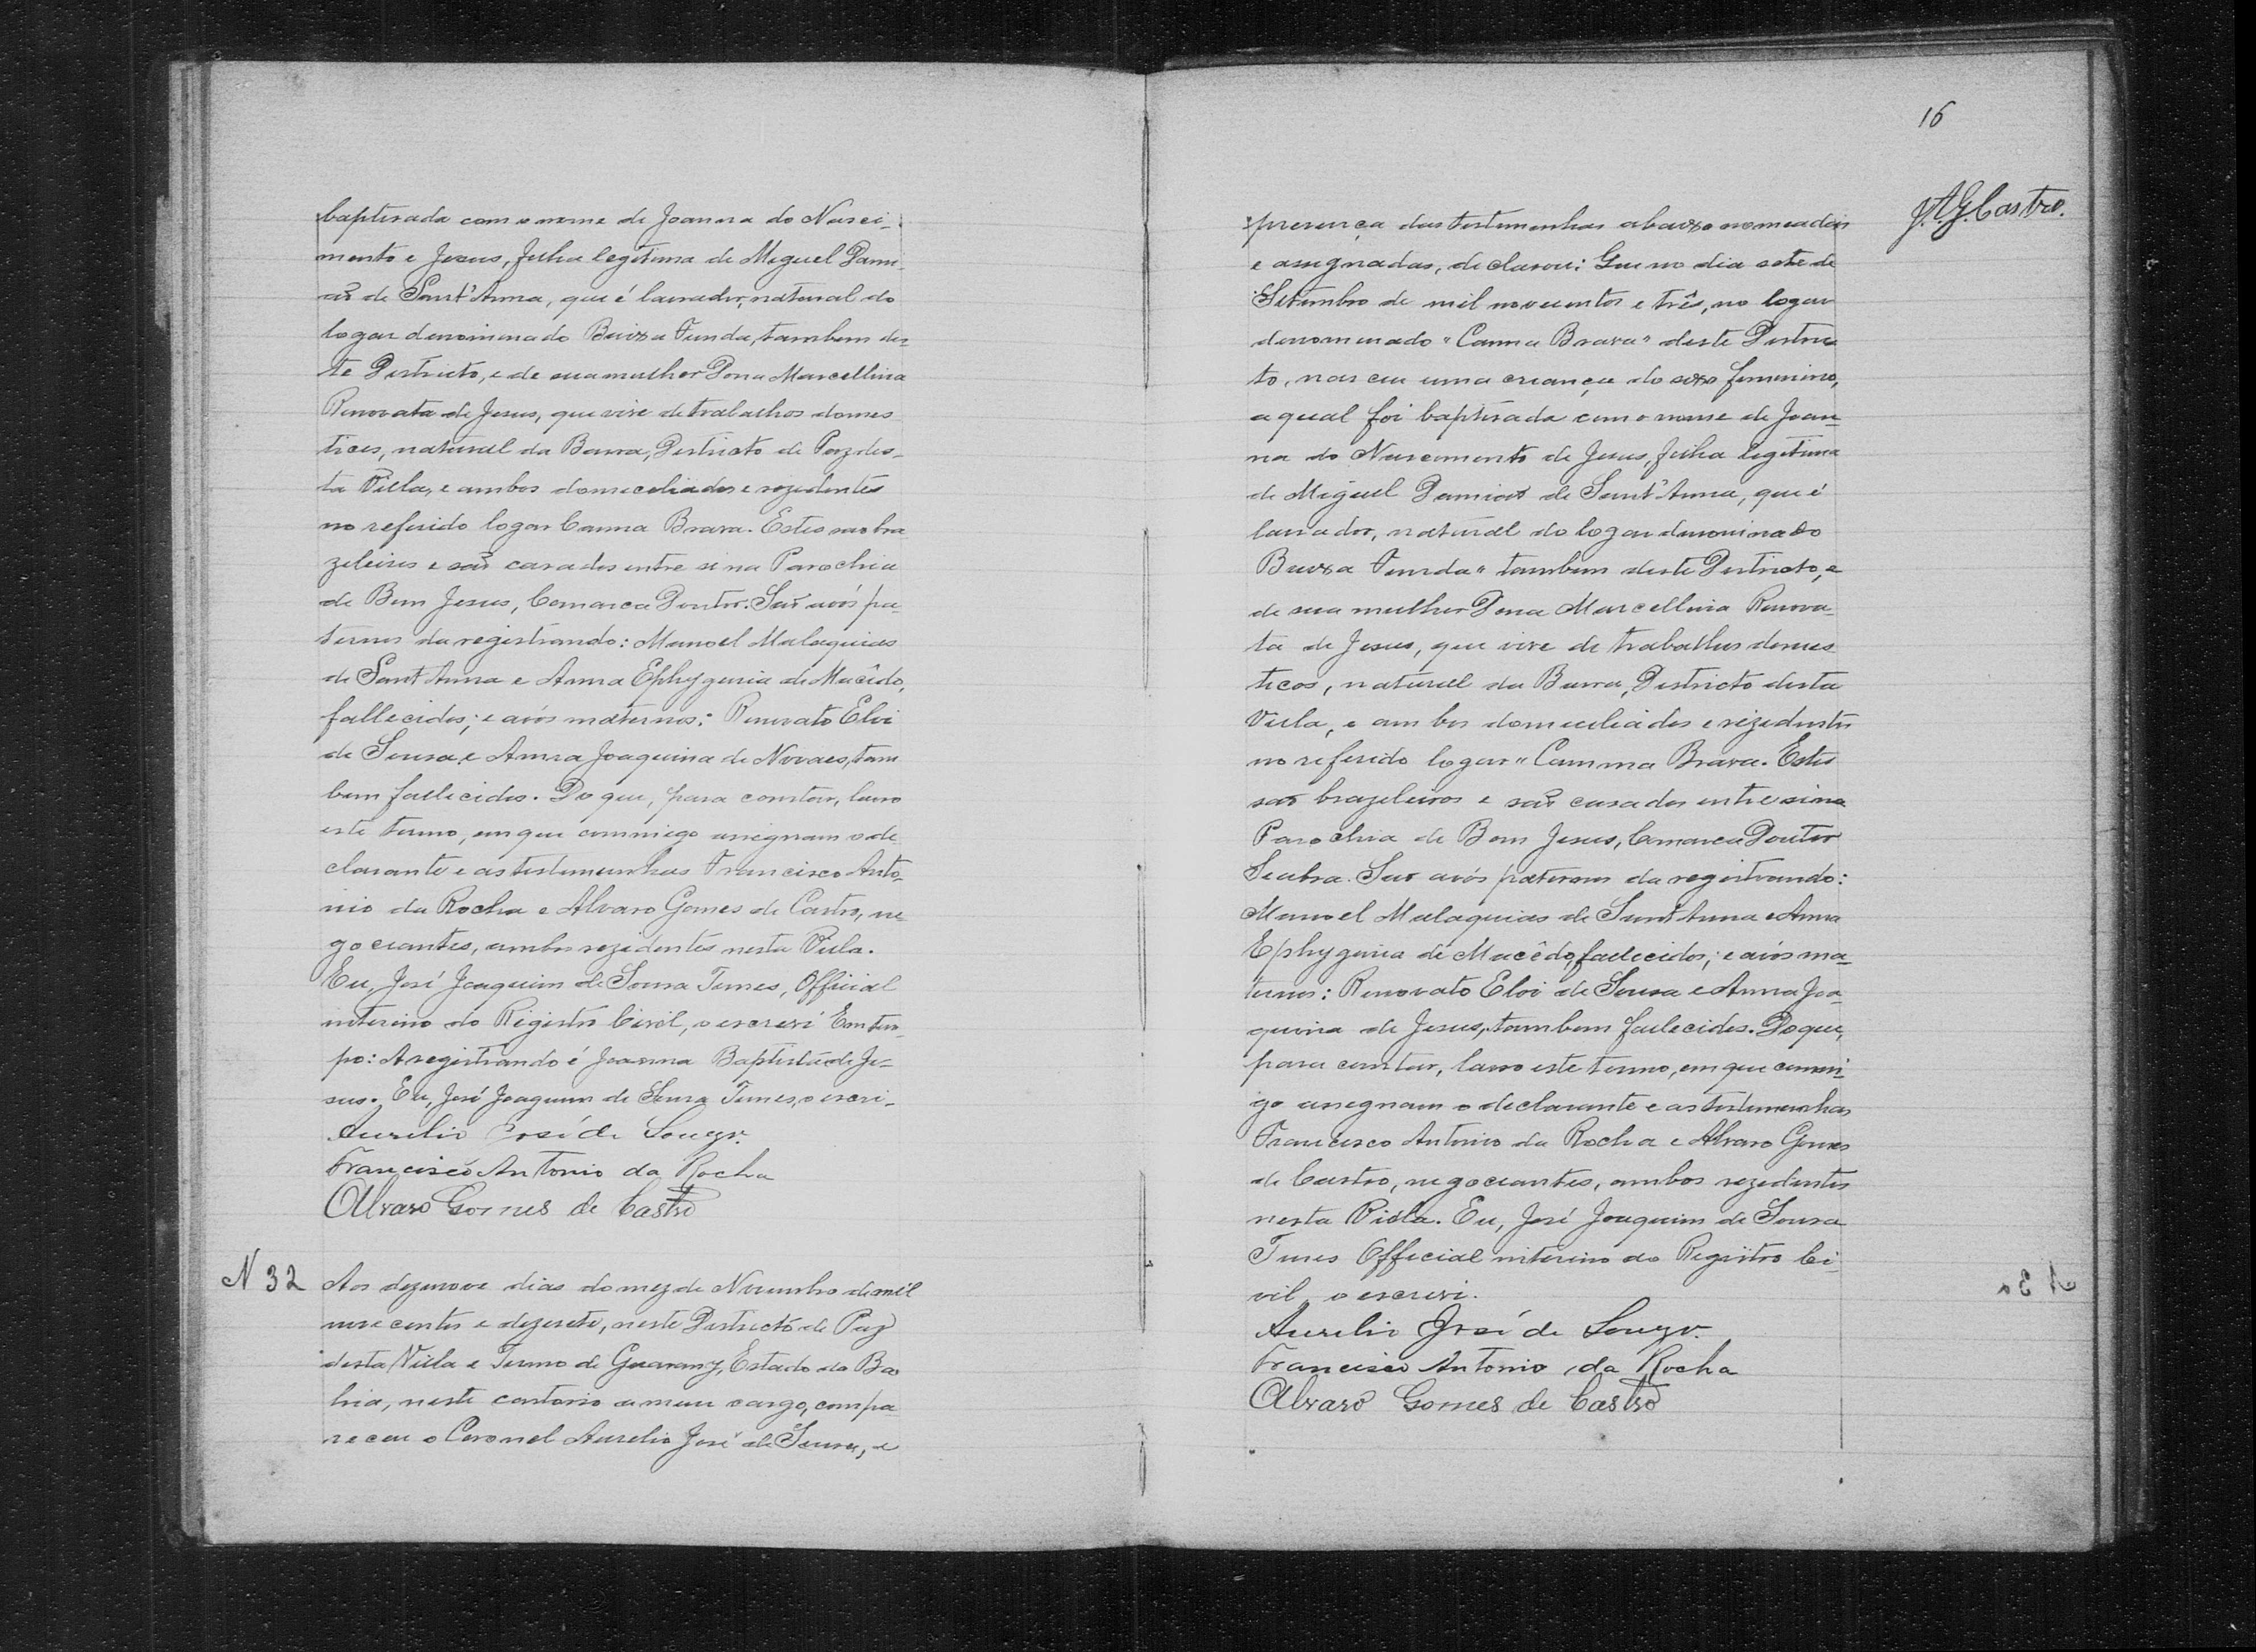 baptisada com o nome de Joanna do Nasci-
mento e Jesus, filha legitima de Miguel Dami-
ão de Sant'Anna, que é lavrador, natural do
logar denominado Baixa Funda, tambem des-
te Districto, e de sua mulher Dona Marcellina
Renovata de Jesus, que vive de trabalhos domes
ticos, natural da Barra, Districto de Paz des-
ta Villa, e ambos domeciliados e rezedentes
no referido logar Canna Brava. Estes são bra
zileiros e são casados entre si na Parochia
de Bom Jesus, Comarca Doutor. São avós pa-
ternos da registrando: Manoel Malaquias
de Sant'Anna e Anna Ephygenia de Macêdo,
fallecidos; e avós maternos: Renovato Eloi
de Sousa e Anna Joaquina de Novaes, tam
bem fallecidos. Do que, para constar, lavro
este termo, em que commigo assignam o de
clarante e as testemunhas Francisco Anto-
nio da Rocha e Alvaro Gomes de Castro, ne-
gociantes, ambos rezidentes nesta Villa.
Eu, José Joaquim de Sousa Tunes, Official
interino do Registro Civil, o escrevi Em tem-
po: A registrando é Joanna Baptista de Je-
sus. Eu, José Joaquim de Sousa Tunes, o escri-
Aurelio José de Souza.
Francisco Antonio da Rocha
Alvaro Gomes de Castro
N 32 Aos dezenove dias do mez de Novembro de mil
nove centos e dezesete, neste Districto de Paz
desta Villa e Termo de Guarany, Estado da Ba
hia, neste cartorio a meu cargo, compa
receu o Coronel Aurelio José de Sousa, e
16
J. A. G. Castro.
presença das testemunhas abaixo nomeadas
e assignadas, declarou: Que no dia sete de
Setembro de mil novecentos e três, no logar
denominado "Canna Brava" deste Distric
to, nasceu uma criança do sexo femenino,
a qual foi baptisada com o nome de Joan-
na do Nascemento de Jesus, filha legitima
de Miguel Damião de Sant'Anna, que é
lavrador, natural do logar denominado
Baixa Funda" tambem deste Districto, e
de sua mulher Dona Marcellina Renova-
ta de Jesus, que vive de trabalhos domes
ticos, natural da Barra, Districto desta
Villa, e ambos domeciliados e rezedentes
no referido logar "Canna Brava. Estes
são brazileiros e são casados entre si na
Parochia de Bom Jesus, Comarca Doutor
Seabra. São avós paternos da registrando:
Manoel Malaquias de Sant'Anna e Anna
Ephygenia de Macêdo, fallecidos; e avós ma-
ternos: Renovato Eloi de Sousa e Anna Joa-
quina de Jesus, tambem fallecidos. Do que,
para constar, lavro este termo, em que comm-
igo assegnam o declarante e as testemunhas
Francisco Antonio da Rocha e Alvaro Gomes
de Castro, negociantes, ambos rezedentes
nesta Villa. Eu, José Joaquim de Sousa
Tunes Official interino do Registro Ci-
vil, o escrevi.
Aurelio José de Souza.
Francisco Antonio da Rocha
Alvaro Gomes de Castro